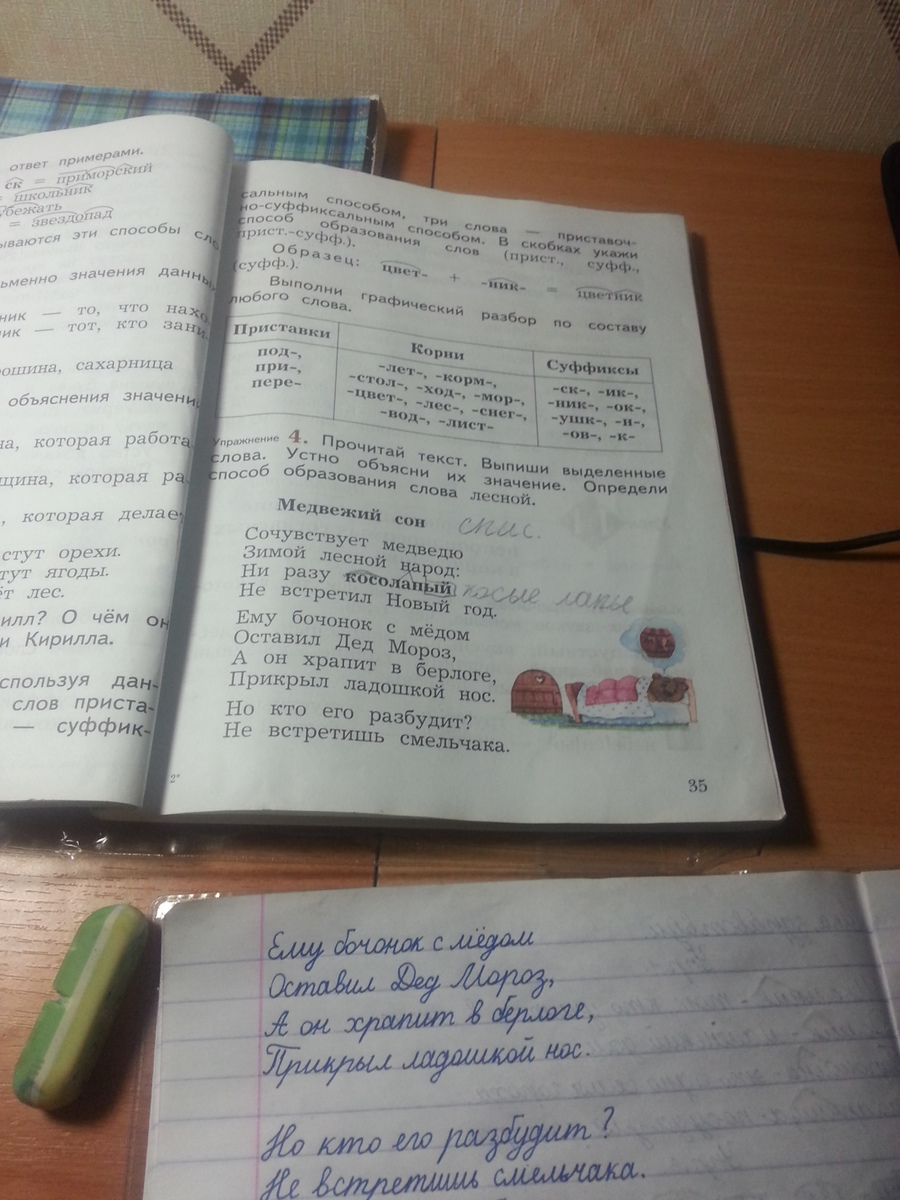 ответ примерами.
ск = приморский
= школьник
убежать
= звездопад
ываются эти способы сло
ьменно значения данны
ник — то, что нахо
ик — тот, кто зани
рошина, сахарница
объяснения значени
на, которая работа
щина, которая ра
, которая делае
стут орехи.
тут ягоды.
ёт лес.
илл? О чём он
и Кирилла.
спользуя дан-
слов приста-
— суффик-
сальным способом, три слова — приставоч-
но-суффиксальным способом. В скобках укажи
способ образования слов (прист., суфф.,
прист.-суфф.).
Образец: цвет- + -ник- = цветник
(суфф.).
Выполни графический разбор по составу
любого слова.
Приставки Корни Суффиксы
под-, -лет-, -корм-, -ск-, -ик-,
при-, -стол-, -ход-, -мор-, -ник-, -ок-,
пере- -цвет-, -лес-, -снег-, -ушк-, -н-,
-вод-, -лист- -ов-, -к-
Упражнение 4. Прочитай текст. Выпиши выделенные
слова. Устно объясни их значение. Определи
способ образования слова лесной.
Медвежий сон спис.
Сочувствует медведю
Зимой лесной народ:
Ни разу косолапый косые лапы
Не встретил Новый год.
Ему бочонок с мёдом
Оставил Дед Мороз,
А он храпит в берлоге,
Прикрыл ладошкой нос.
Но кто его разбудит?
Не встретишь смельчака.
2*
35
Ему бочонок с мёдом
Оставил Дед Мороз,
А он храпит в берлоге,
Прикрыл ладошкой нос.
Но кто его разбудит?
Не встретишь смельчака.